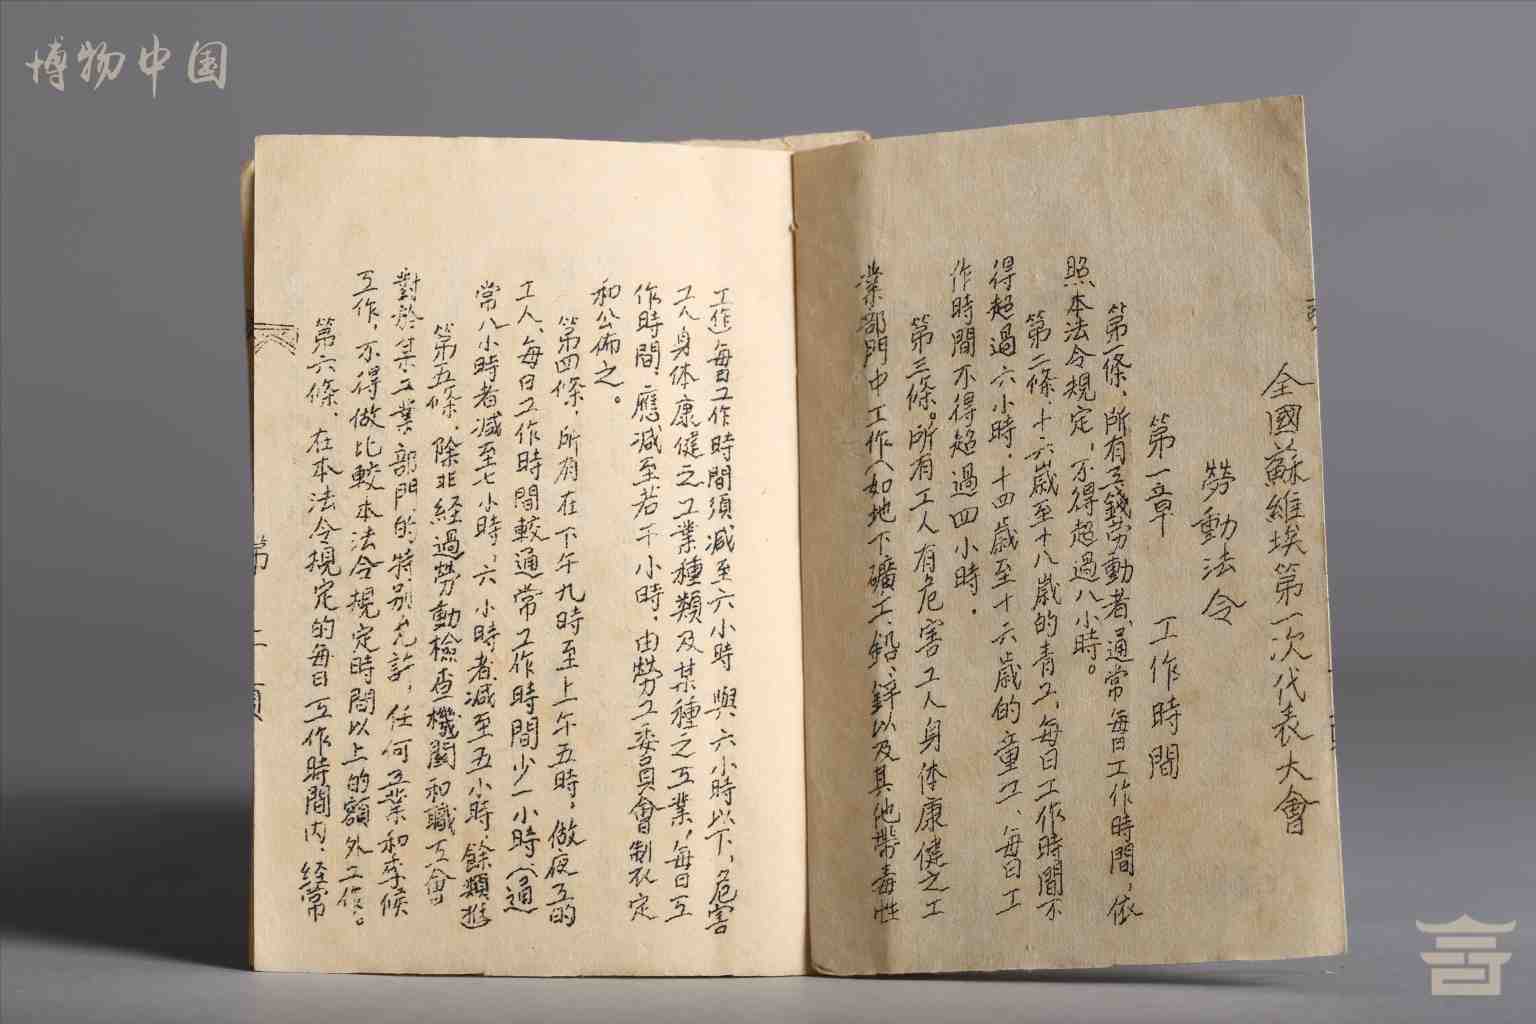 博物中国
全國蘇維埃第一次代表大會
勞動法令
第一章　工作時間
第一條、所有工錢劳動者、通常每日工作時間，依
照本法令規定，不得超過八小時。
第二條、十六歲至十八歲的青工、每日工作時間不
得超過六小時，十四歲至十六歲的童工、每日工
作時間不得超過四小時．
第三條。所有工人有危害工人身体康健之工
業部門中工作（如地下礦工、鉛、鋅以及其他帶毒性
工作）每日工作時間須減至六小時　與六小時以下，危害
工人身体康健之工業種類及某種之工業，每日工
作時間，應減至若干小時，由勞工委員會制定
和公佈之。
第四條，所有在下午九時至上午五時，做夜工的
工人、每日工作時間較通常工作時間少一小時（通
常八小時者減至七小時，六小時者減至五小時，餘類推
第五條、除非経過勞動檢查機關和職工會
對於某工業部門的特别允許，任何工業和季候
工作，不得做比較本法令規定時間以上的額外工作。
第六條、在本法令規定的每日工作時間内，経常
第
二
項